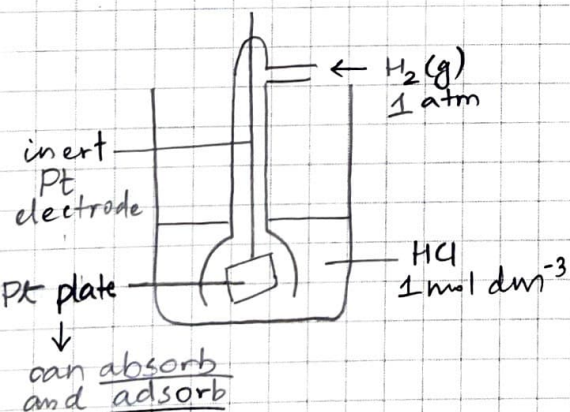 ← H₂(g)
1 atm
inert
Pt
electrode
HCl
1 mol dm⁻³
Pt plate
↓
can absorb
and adsorb